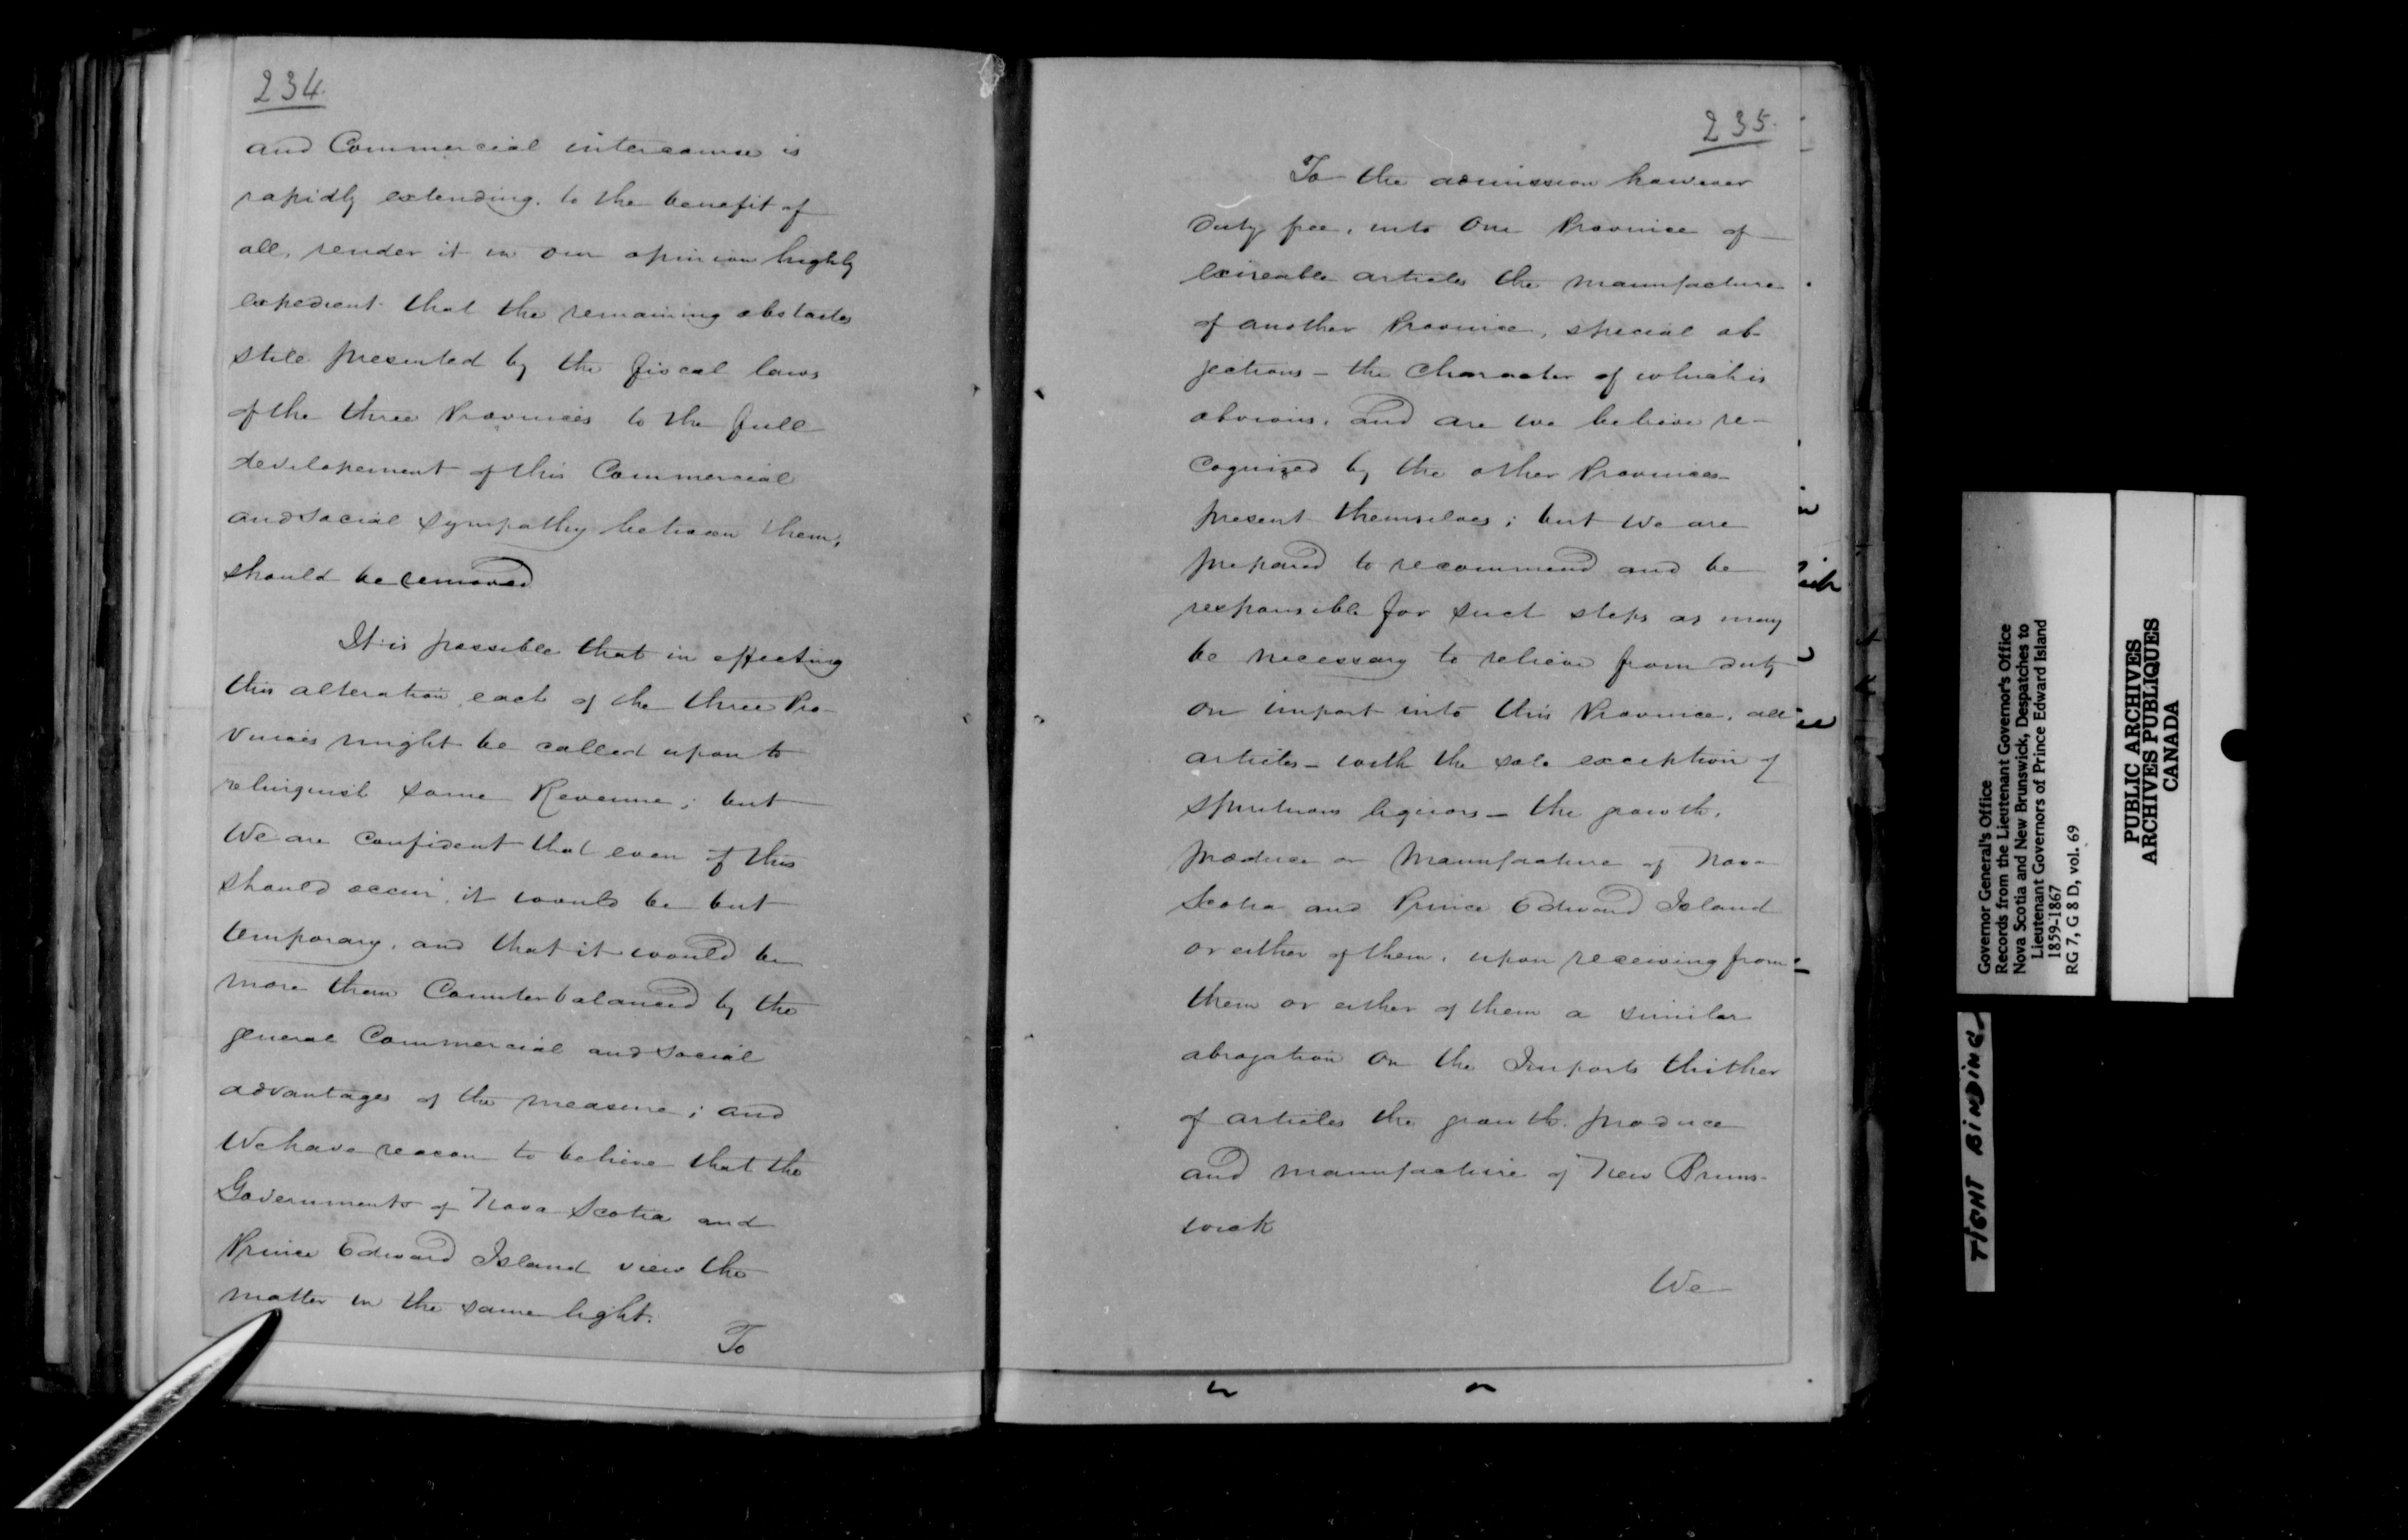 234.
and Commercial intercourse is
rapidly extending. to the benefit of
all, render it in our opinion highly
expedient that the remaining obstacles
still presented by the fiscal laws
of the three Provinces to the full
developement of this Commercial
and social sympathy between them,
should be removed
It is possible that in effecting
this alteration, each of the three Pro-
vinces might be called upon to
relinquish some Revenue; but
We are confident that even if this
should occur, it would be but
temporary, and that it would be
more than Counterbalanced by the
general Commercial and social
advantages of the measure; and
We have reason to believe that the
Governments of Nova Scotia and
Prince Edward Island view the
matter in the same light.
To
235.
To the admission however
duty free, into One Province of
Exciseable articles the manufacture
of another Province, special ob-
jections - the Character of which is
obvious, and are we believe re-
cognized by the other Provinces -
present themselves; but We are
prepared to recommend and be
responsible for such steps as may
be necessary to relieve from duty
on import into this Province, all
articles - with the sole exception of
Spirituous liquors - the growth,
produce or Manufacture of Nova
Scotia and Prince Edward Island
or either of them, upon receiving from
them or either of them a similar
abrogation on the Imports thither
of articles the growth, produce
and manufacture of New Bruns-
wick
We
Governor General's Office
Records from the Lieutenant Governor's Office
Nova Scotia and New Brunswick, Despatches to
Lieutenant Governors of Prince Edward Island
1859-1867
RG 7, G 8 D, vol. 69
PUBLIC ARCHIVES
ARCHIVES PUBLIQUES
CANADA
TIGHT BINDING